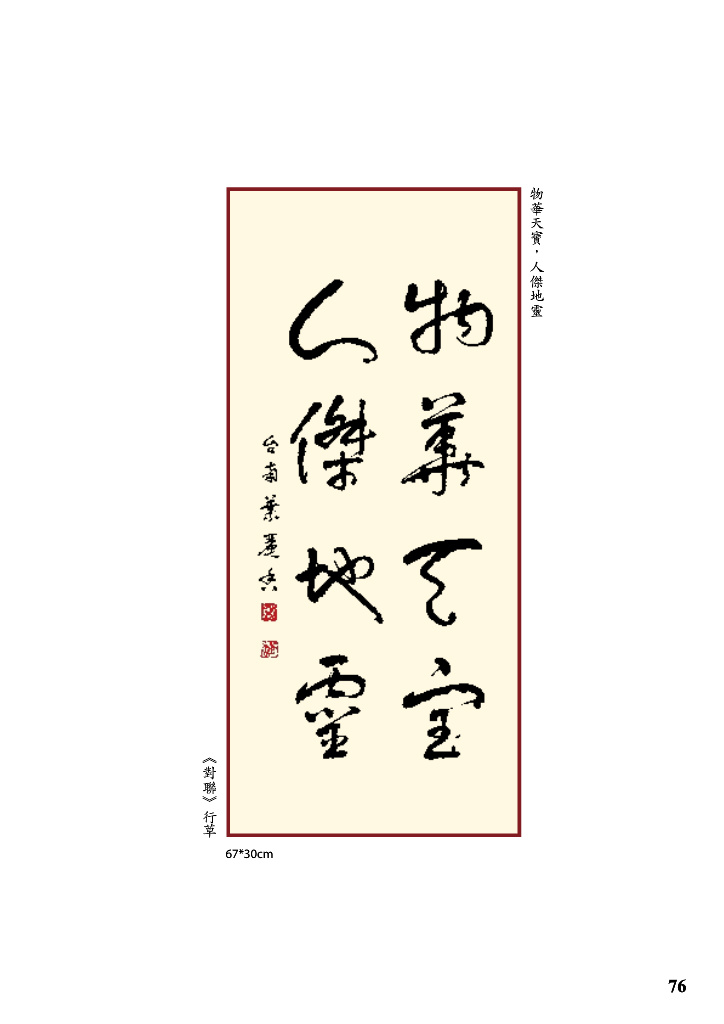 物華天寶，人傑地靈
物華天寶
人傑地靈
台南葉麗香
《對聯》行草
67*30cm
76